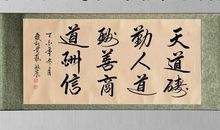 天道酬
勤人道
酬善商
道酬信
年冬月